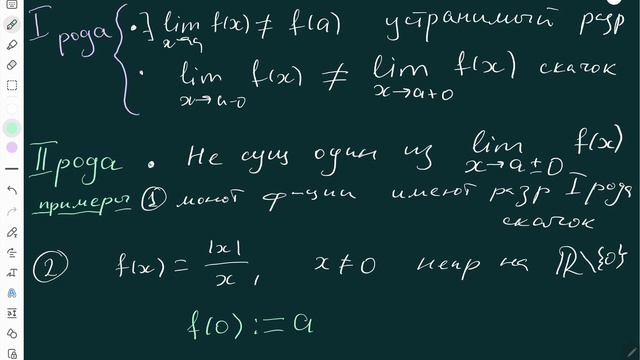 I рода { · ] lim x→a f(x) ≠ f(a) устранимый разр
· lim x→a-0 f(x) ≠ lim x→a+0 f(x) скачок
II рода · Не сущ один из lim x→a±0 f(x)
примеры ① монот ф-ции имеют разр I рода
скачок
② f(x) = |x|/x, x≠0 непр на ℝ\{0}
f(0) := a